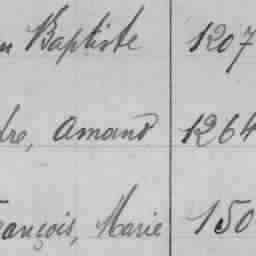 Baptiste 1207
dre, Amand 1264
rançois, Marie 150